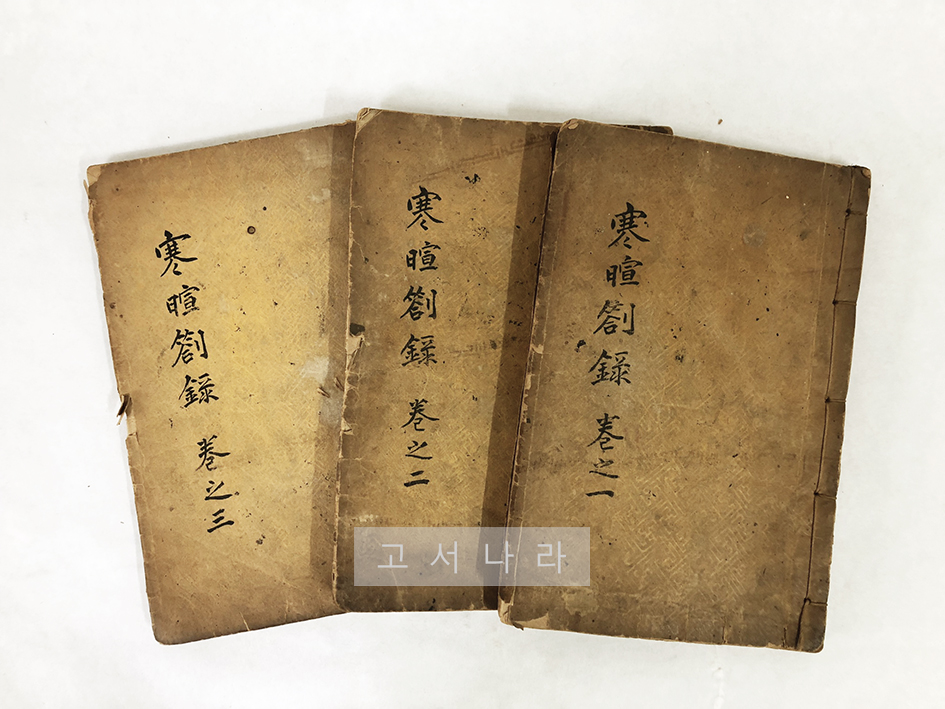 寒暄劄錄 卷之一
寒暄劄錄 卷之二
寒暄劄錄 卷之三
고서나라